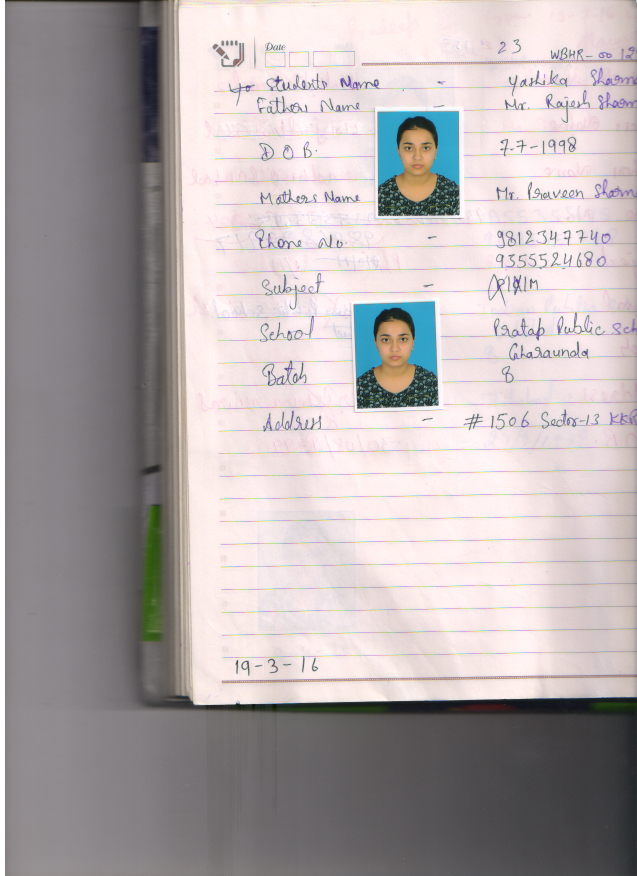 Date
23
WBHR-00 12
Students Name - Yashika Sharma
Fathers Name - Mr. Rajesh Sharm
D O B. 7-7-1998
Mothers Name Mr. Praveen Sharm
Phone No. - 9812347740
9355524680
Subject - P|X|M
School Pratap Public Sch
Gharaunda
Batch 8
Address - # 1506 Sector-13 KKR
19-3-16